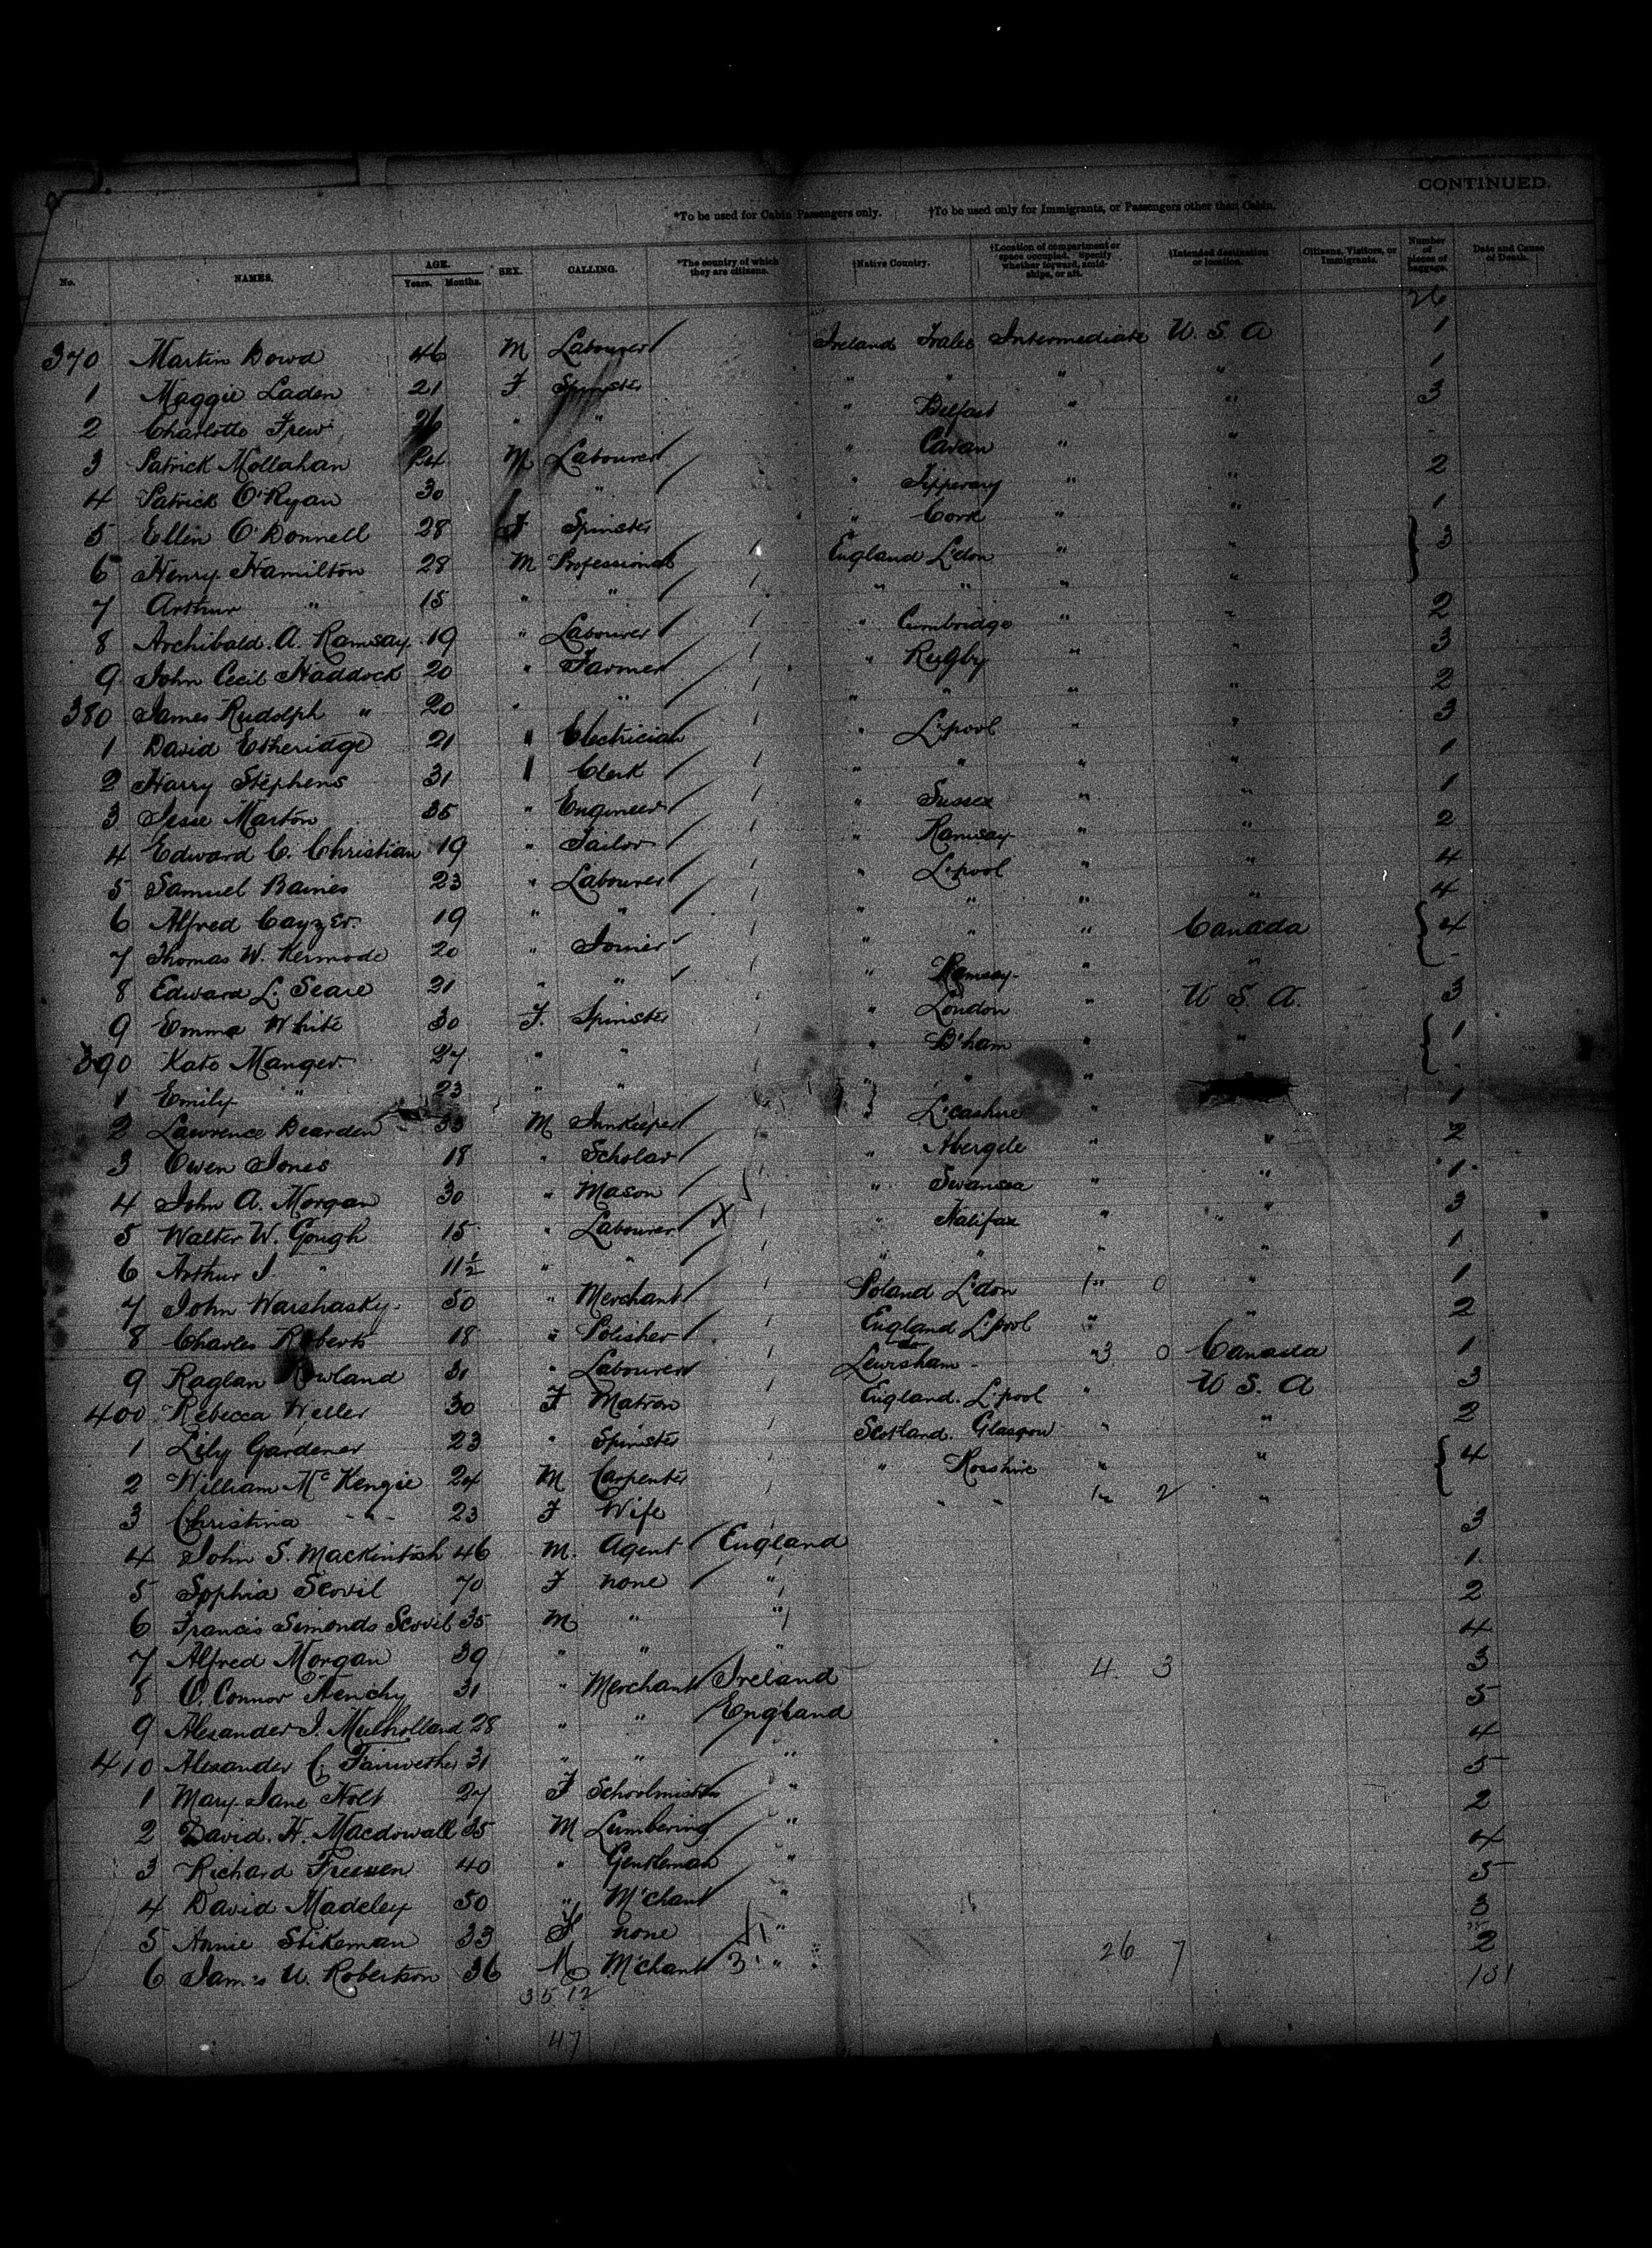 CONTINUED.
*To be used for Cabin Passengers only. †To be used only for Immigrants, or Passengers other than Cabin.
No. NAMES. AGE. Years. Months. SEX. CALLING. *The country of which they are citizens. †Native Country. †Location of compartment or space occupied. Specify whether forward, amidships, or aft. †Intended destination or location. Citizens, Visitors, or Immigrants. Number of pieces of baggage. Date and Cause of Death.
26
370 Martin Dowd 46 M Labourer Ireland Tralee Intermediate U. S. A 1
1 Maggie Laden 21 F Spinster " " " " 1
2 Charlotte Frew 26 " " " Belfast " " 3
3 Patrick Mollahan 24 M Labourer " Cavan " " -
4 Patrick O'Ryan 30 " " Tipperary " " 2
5 Ellen O'Donnell 28 F Spinster " Cork " " 1
6 Henry Hamilton 28 M Professional England L'don " " 3
7 Arthur " 15 " " " " " "
8 Archibald. A. Ramsay 19 " Labourer " Cambridge " " 2
9 John Cecil Haddock 20 " Farmer " Rugby " " 3
380 James Rudolph " 20 " " " " " " 2
1 David Etheridge 21 " Electrician " L'pool " " 3
2 Harry Stephens 31 " Clerk " " " " 1
3 Jesse Marton 35 " Engineer " Sussex " " 1
4 Edward C. Christian 19 " Tailor " Ramsay " " 2
5 Samuel Baines 23 " Labourer " L'pool " " 4
6 Alfred Cayzer 19 " " " " " " 4
7 Thomas W. Kermode 20 " Joiner " " " Canada 4
8 Edward L. Seare 21 " " " Ramsay " " -
9 Emma White 30 F. Spinster " London " U S. A. 3
390 Kate Manger 27 " " " B'ham " " 1
1 Emily " 23 " " " " " -
2 Lawrence Bearden 33 M Innkeeper " L'cashire " 1
3 Owen Jones 18 " Scholar " Abergele " " 2
4 John A. Morgan 30 " Mason " Swansea " " 1
5 Walter W. Gough 15 " Labourer X " Halifax " " 3
6 Arthur J. " 11½ " " " " " " 1
7 John Warshasky 50 " Merchant Poland L'don 1" 0 " 1
8 Charles Roberts 18 " Polisher England L'pool " " 2
9 Raglan Rowland 31 " Labourer Lewisham - "3 0 Canada 1
400 Rebecca Weller 30 F Matron England. L'pool " U S. A 3
1 Lily Gardener 23 " Spinster Scotland. Glasgow " " 2
2 William McKenzie 24 M Carpenter " Rosshire " " 4
3 Christina " 23 F Wife " " 1" 2 "
4 John S. Mackintosh 46 M. Agent England 3
5 Sophia Scovil 70 F none " 1
6 Francis Simonds Scovil 35 M " " 2
7 Alfred Morgan 39 " " " 4
8 O. Connor Henchy 31 " Merchant Ireland 4. 3 3
9 Alexander J. Mulholland 28 " " England 5
410 Alexander C. Fairwether 31 " " " 4
1 Mary Jane Holt 27 F Schoolmistress " 5
2 David. H. Macdowall 35 M Lumbering " 2
3 Richard 40 " Gentleman " 4
4 David Madeley 50 " M'chant " 5
5 Annie Stikeman 33 F none " 3
6 James U. Robertson 36 M M'chant 3 " 26 7 2
35 12 131
47